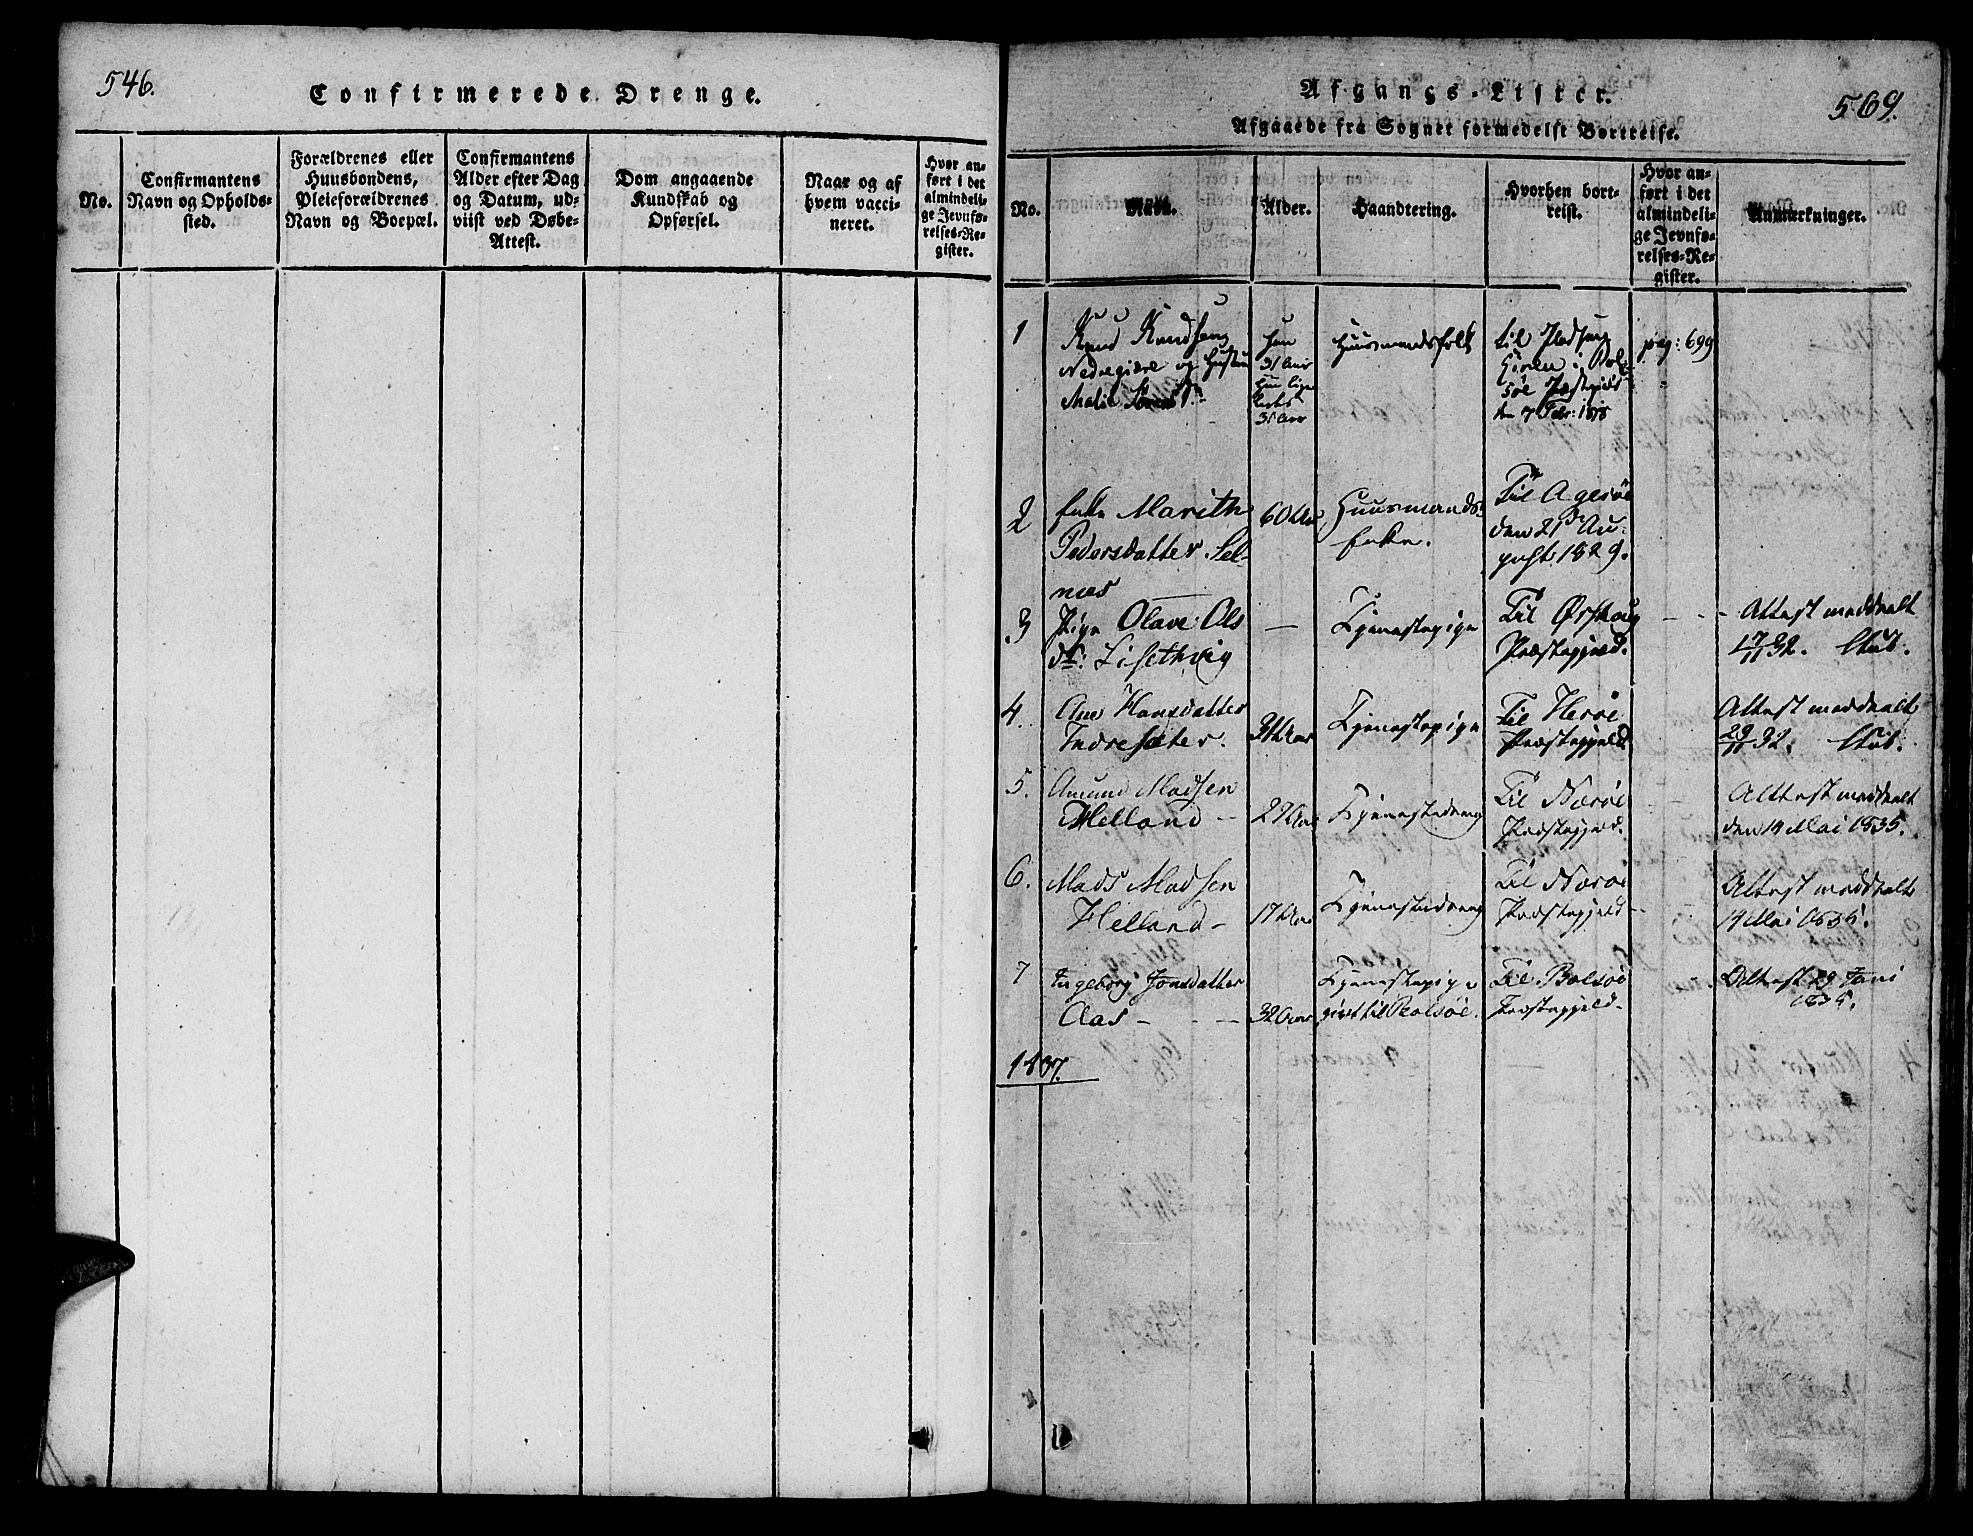 546.
Confirmerede Drenge.
No.
Confirmantens
Navn og Opholds-
sted.
Forældrenes eller
Huusbondens,
Pleieforældrenes
Navn og Boepæl.
Confirmantens
Alder efter Dag
og Datum, ud-
viist ved Døbe-
Attest.
Dom angaaende
Kundskab og
Opførsel.
Naar og af
hvem vacci-
neret.
Hvor an-
ført i det
almindeli-
ge Jevnfø-
relses-Re-
gister.
Afgangs-Lister.
569.
Afgaaede fra Sognet formedelst Bortreise.
No.
Navn.
Alder.
Haandtering.
Hvorhen bort-
reist.
Hvor an-
ført i det
almindeli-
ge Jevnfø-
relses-Re-
gister.
Anmærkninger.
1
Knud Knudsen
og Hustru
31 Aar
31 Aar
Huusmandsfolk
til
i Bol-
søe Præstegield
den 7 Febr: 1818
pag: 699
2
Enke Marith
Pedersdatter Sel-
næs
60 Aar
Huusmands-
Enke.
Til Agerøe
den 21 Au-
gust 1829.
3
Pige Olave Ols
dt: Lisethvig
—
Tjenestepige
Til Ørskoug
Præstegjeld.
Attest meddeelt
17/11 32. Stub.
4.
Ane Hansdatter
Indresæter.
Tjenestepige
Til Herøe
Præstegjeld.
Attest meddeelt
29/11 32. Stub.
5.
Amund Madsen
Helland –
Tjenestedreng
Til Nærøe
Præstegjeld.
Attest meddeelt
den 14 Mai 1835.
6.
Mads Madsen
Helland –
17 Aar
Tjenestedreng
Til Nærøe
Præstegjeld
Attest meddeelt
14 Mai 1835.
7
Ingeborg Jonsdatter
Aas –
32 Aar
Tjenestepige
givt til Bolsøe.
Til Bolsøe
Præstegjeld.
Attest 29 Juni
1835.
1837.